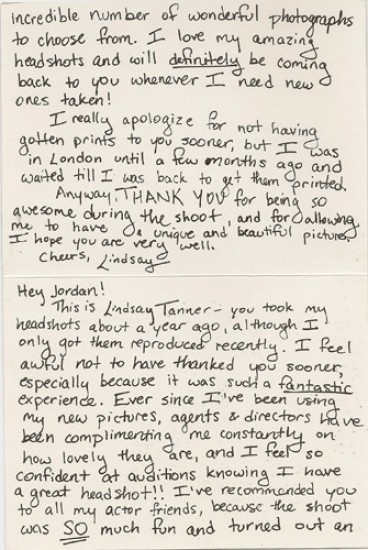 incredible number of wonderful photographs
to choose from. I love my amazing
headshots and will definitely be coming
back to you whenever I need new
ones taken!
I really apologize for not having
gotten prints to you sooner, but I was
in London until a few months ago and
waited till I was back to get them printed.
Anyway, THANK YOU for being so
awesome during the shoot, and for allowing
me to have a unique and beautiful pictures.
I hope you are very well.
Cheers, Lindsay
Hey Jordan!
This is Lindsay Tanner - you took my
headshots about a year ago, although I
only got them reproduced recently. I feel
awful not to have thanked you sooner,
especially because it was such a fantastic
experience. Ever since I've been using
my new pictures, agents & directors have
been complimenting me constantly on
how lovely they are, and I feel so
confident at auditions knowing I have
a great headshot!! I've recommended you
to all my actor friends, because the shoot
was SO much fun and turned out an